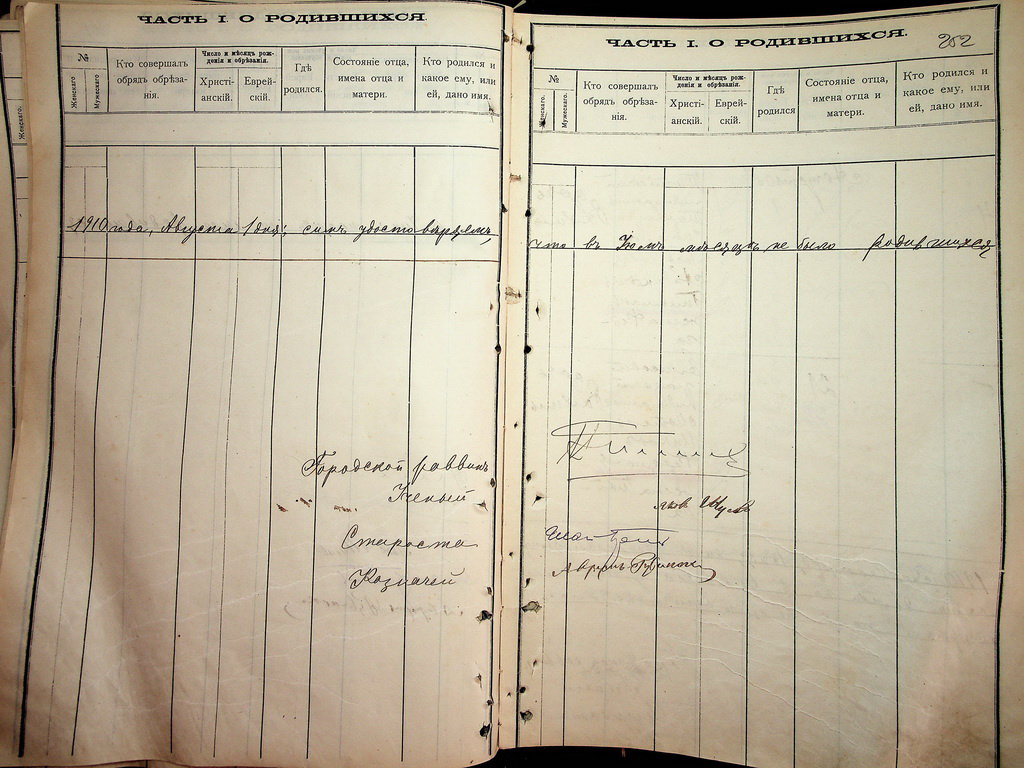 ЧАСТЬ I. О РОДИВШИХСЯ.
№
Женскаго.
Мужескаго.
Кто совершалъ
обрядъ обрѣза-
нія.
Число и мѣсяцъ рож-
денія и обрѣзанія.
Христі-
анскій.
Еврей-
скій.
Гдѣ
родился.
Состояніе отца,
имена отца и
матери.
Кто родился и
какое ему, или
ей, дано имя.
1910 года, Августа 1 дня; симъ удостовѣряемъ,
Городской раввинъ
Ученый
Староста
Казначей
ЧАСТЬ I. О РОДИВШИХСЯ.
252
№
Женскаго.
Мужескаго.
Кто совершалъ
обрядъ обрѣза-
нія.
Число и мѣсяцъ рож-
денія и обрѣзанія.
Христі-
анскій.
Еврей-
скій.
Гдѣ
родился
Состояніе отца,
имена отца и
матери.
Кто родился и
какое ему, или
ей, дано имя.
что въ Іюлѣ мѣсяцѣ не было родившихся